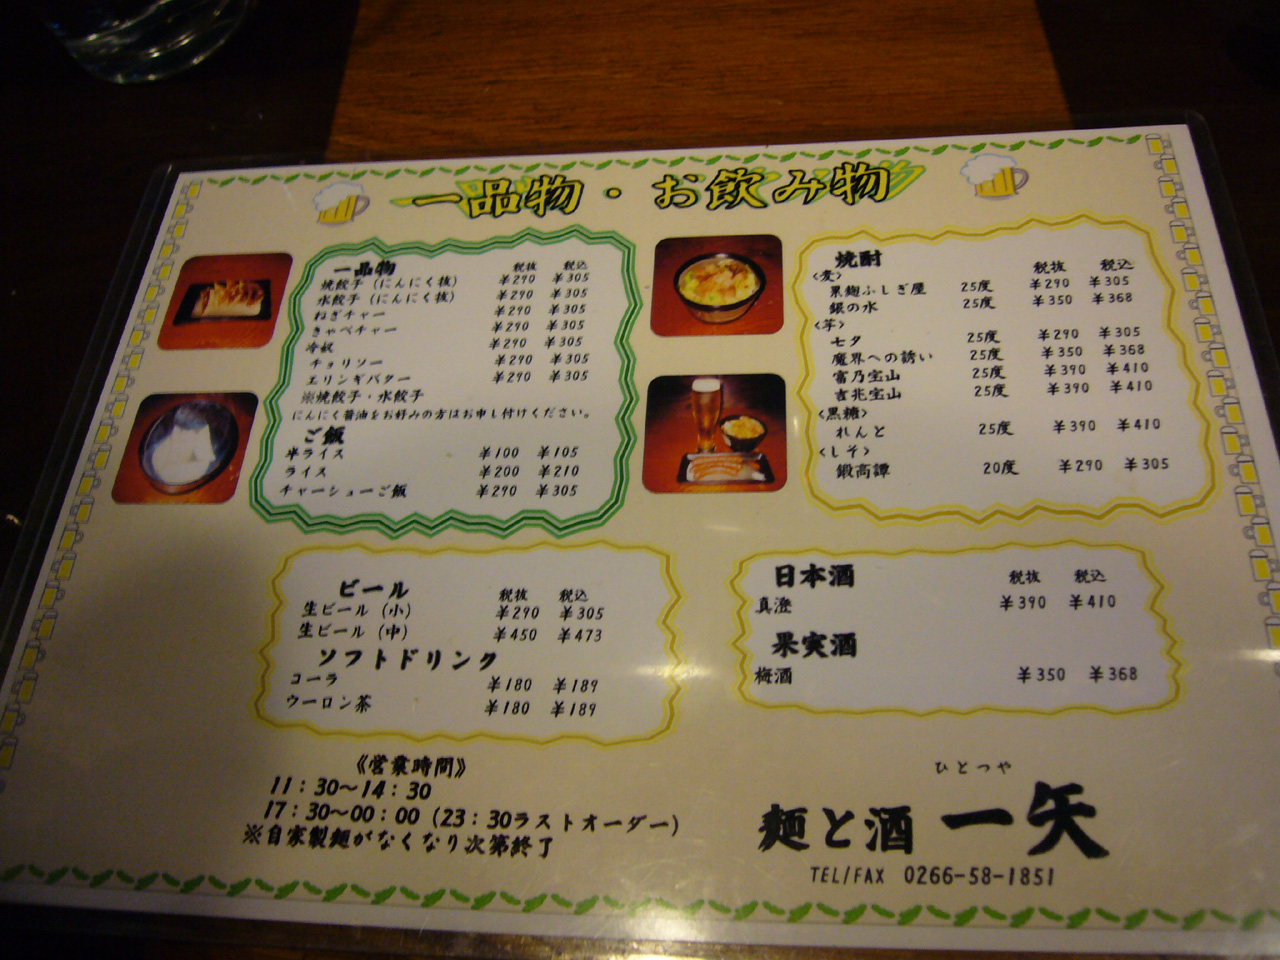 一品物・お飲み物
一品物 税抜 税込
焼餃子（にんにく抜） ¥290 ¥305
水餃子（にんにく抜） ¥290 ¥305
ねぎチャー ¥290 ¥305
きゃべチャー ¥290 ¥305
冷奴 ¥290 ¥305
チョリソー ¥290 ¥305
エリンギバター ¥290 ¥305
※焼餃子・水餃子
にんにく醤油をお好みの方はお申し付けください。
ご飯
半ライス ¥100 ¥105
ライス ¥200 ¥210
チャーシューご飯 ¥290 ¥305
焼酎 税抜 税込
<麦>
黒麹ふしぎ屋 25度 ¥290 ¥305
銀の水 25度 ¥350 ¥368
<芋>
七夕 25度 ¥290 ¥305
魔界への誘い 25度 ¥350 ¥368
富乃宝山 25度 ¥390 ¥410
吉兆宝山 25度 ¥390 ¥410
<黒糖>
れんと 25度 ¥390 ¥410
<しそ>
鍛高譚 20度 ¥290 ¥305
ビール 税抜 税込
生ビール（小） ¥290 ¥305
生ビール（中） ¥450 ¥473
ソフトドリンク
コーラ ¥180 ¥189
ウーロン茶 ¥180 ¥189
日本酒 税抜 税込
真澄 ¥390 ¥410
果実酒
梅酒 ¥350 ¥368
《営業時間》
11：30〜14：30
17：30〜00：00（23：30ラストオーダー）
※自家製麺がなくなり次第終了
ひとつや
麺と酒 一矢
TEL/FAX 0266-58-1851